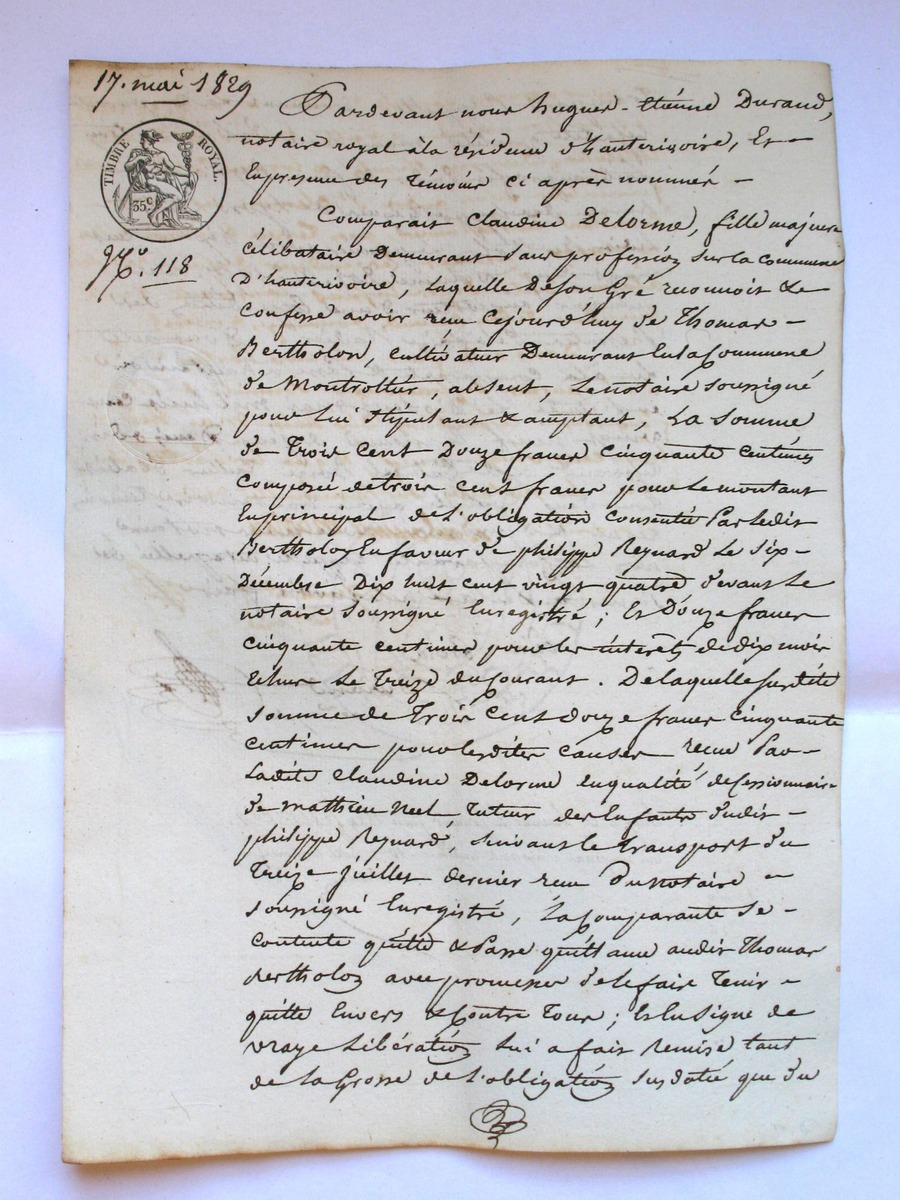 17. mai 1829
TIMBRE ROYAL.
35 c
N.o 118
Pardevant nous hugues-étienne Durand,
notaire royal à la résidence d'hauterivoire, Et
En presence des témoins ci après nommés
Comparait Claudine Delorme, fille majeure
célibataire Demeurant sans profession sur la commune
D'hauterivoire, Laquelle De son Gré reconnoit &
Confesse avoir reçu Cejourd'huy de Thomas
Bertholon, cultivateur Demeurant En la Commune
de Montrottier, absent, Le notaire soussigné
pour lui stipulant & acceptant, La somme
de Trois cent Douze francs cinquante centimes
Composée de trois cent francs pour le montant
En principal de L'obligation consentie Par Ledit
Bertholon En faveur de philippe Reynard Le six
Décembre Dix huit cent vingt quatre devant Le
notaire soussigné Enregistré ; Et Douze francs
cinquante centimes pour les interets de dix mois
Echus Le Treize du Courant. De laquelle susdite
somme de Trois cent douze francs cinquante
centimes pour lesdites causes reçue Par
Ladite Claudine Delorme en qualité de Cessionnaire
de mathieu neel, Tuteur des Enfants dudit
philippe Reynard, suivant le transport du
Treize juillet dernier reçu Du notaire
soussigné Enregistré, La Comparante se
contente quitte & Passe quittance audit Thomas
Bertholon avec promesse de le faire Tenir
quitte Envers & Contre Tous ; Et En Signe de
vraye Libération Lui a fait Remise tant
de la Grosse de L'obligation susdatée que du